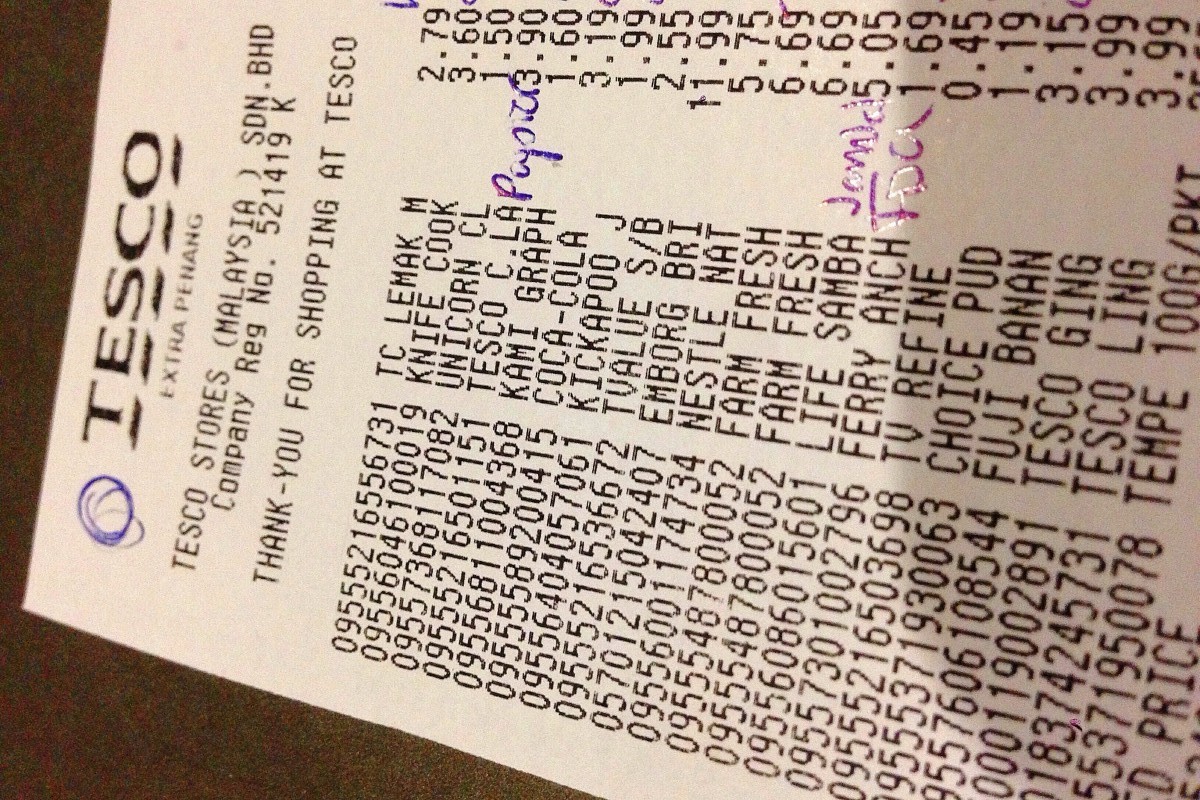 TESCO
EXTRA PENANG
TESCO STORES (MALAYSIA ) SDN.BHD
Company Reg No. 521419 K
THANK-YOU FOR SHOPPING AT TESCO
09555216556731 TC LEMAK M 2.79
09556046100019 KNIFE COOK 3.60
09557368117082 UNICORN CL 1.50
09555216501151 TESCO C.LA 3.90
09556811004368 KAMI GRAPH 1.60
09555589200415 COCA-COLA 3.19
09556404057061 KICKAPOO J 1.99
09555216536672 TVALUE S/B 2.55
05701215042407 EMBORG BRI 11.99
09556001174734 NESTLE NAT 5.75
09555487800052 FARM FRESH 6.69
09555487800052 FARM FRESH 6.69
09556086015601 LIFE SAMBA 5.05
09557301002796 FERRY ANCH 1.69
09555216503698 TV REFINE 0.45
09555371930063 CHOICE PUD 1.19
9557606108544 FUJI BANAN 3.15
0001190002891 TESCO GING 3.99
018374245731 TESCO LING 3.99
55371950078 TEMPE 100G/PKT
D PRICE